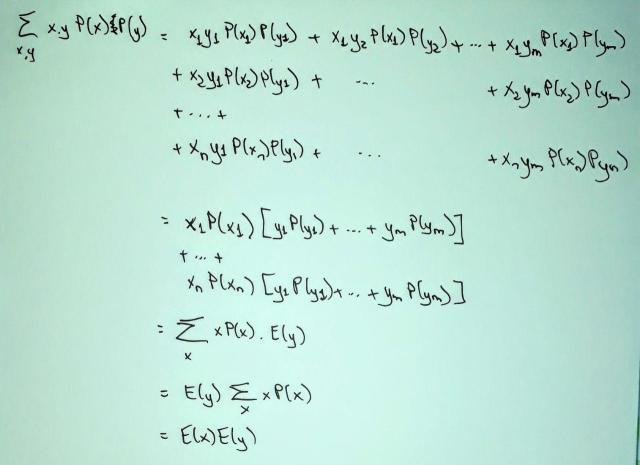 ∑ x,y x.y P(x)P(y) = x₁y₁ P(x₁) P(y₁) + x₁y₂ P(x₁)P(y₂) + ... + x₁yₘ P(x₁) P(yₘ)
+ x₂y₁ P(x₂) P(y₁) + ... + x₂yₘ P(x₂) P(yₘ)
+ ... +
+ xₙy₁ P(xₙ) P(y₁) + ... + xₙyₘ P(xₙ) P(yₘ)
= x₁P(x₁) [y₁P(y₁) + ... + yₘ P(yₘ)]
+ ... +
xₙ P(xₙ) [y₁ P(y₁) + ... + yₘ P(yₘ)]
= ∑ x xP(x) . E(y)
= E(y) ∑ x xP(x)
= E(x)E(y)